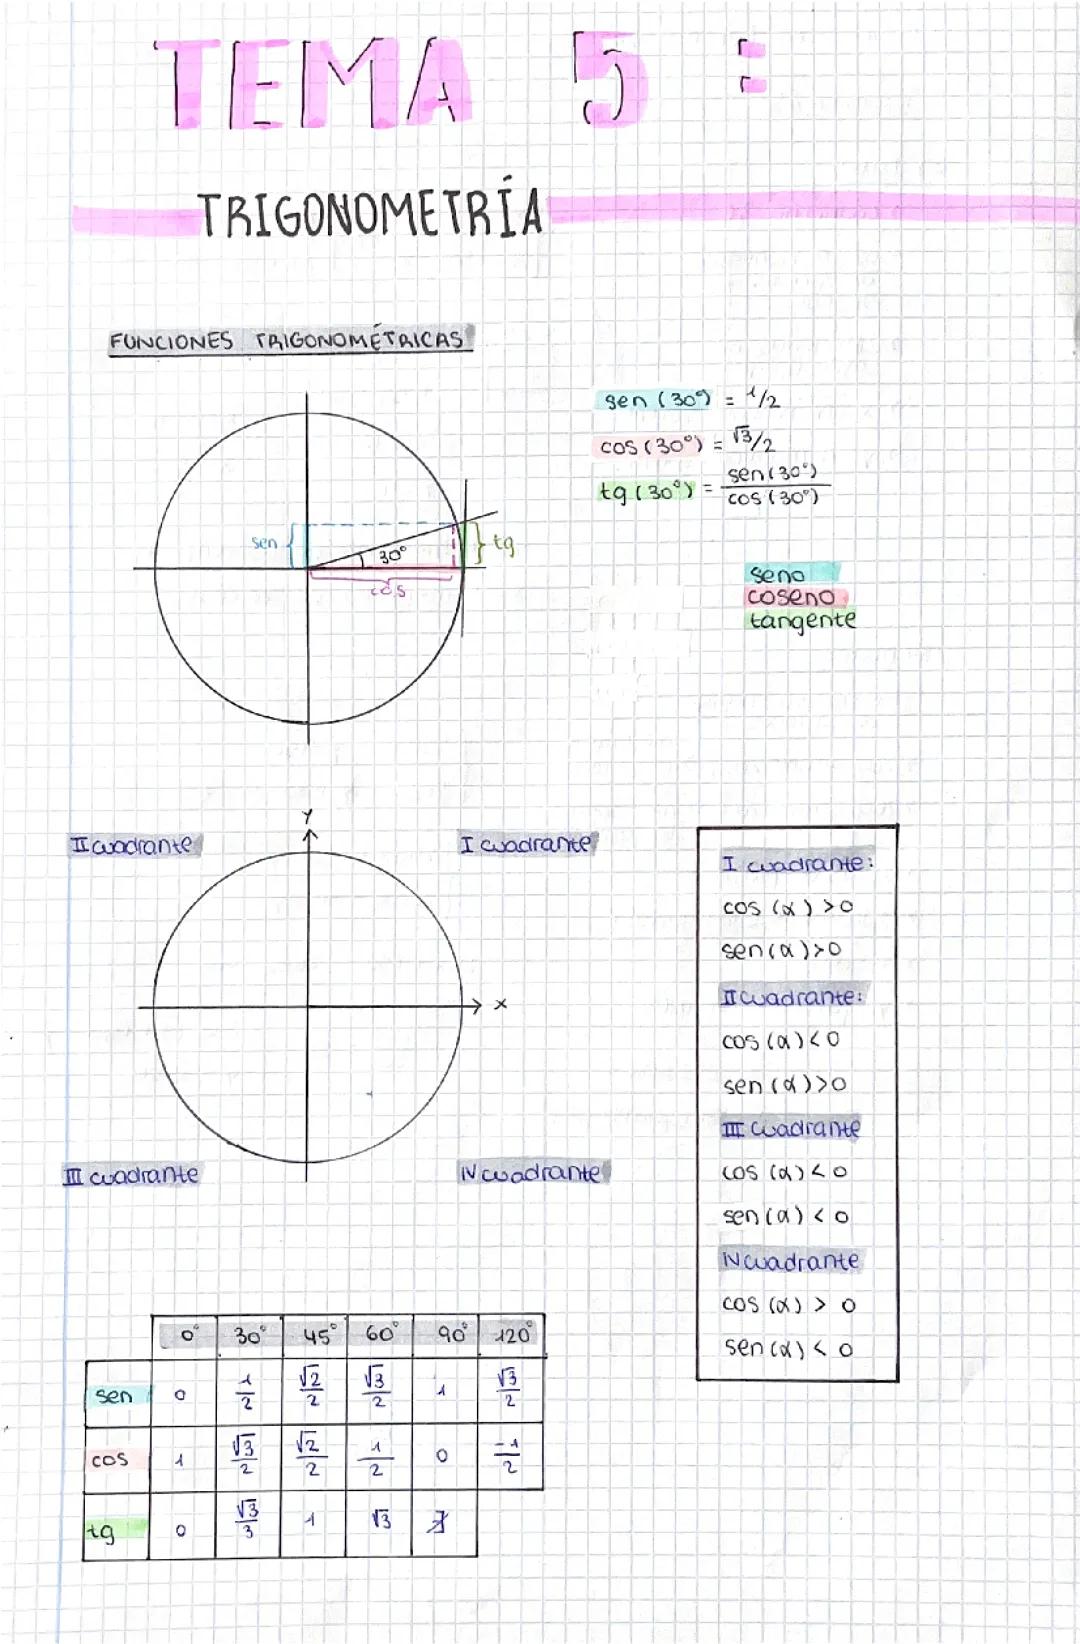 TEMA 5 :
TRIGONOMETRÍA
FUNCIONES TRIGONOMÉTRICAS
sen (30º) = 1/2
cos (30º) = √3/2
tg (30º) = sen (30º) / cos (30º)
sen
30º
tg
cos
seno
coseno
tangente
Y
II cuadrante
I cuadrante
X
III cuadrante
IV cuadrante
I cuadrante:
cos (α) > 0
sen (α) > 0
II cuadrante:
cos (α) < 0
sen (α) > 0
III cuadrante
cos (α) < 0
sen (α) < 0
IV cuadrante
cos (α) > 0
sen (α) < 0
0º 30º 45º 60º 90º 120º
sen 0 1/2 √2/2 √3/2 1 √3/2
cos 1 √3/2 √2/2 1/2 0 -1/2
tg 0 √3/3 1 √3 ∄